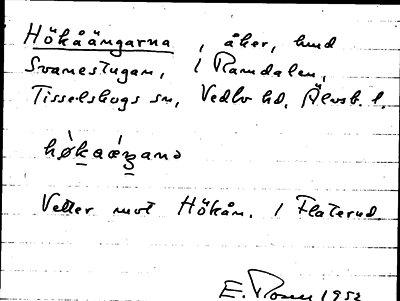 Hökåängarna, åker, hmd
Svanestugan, i Ramdalen,
Tisselskogs sn, Vedbo hd, Älvsb. l.
hø̀kaǽŋanə
Vetter mot Hökån. i Flaterud.
E. Rosen 1952